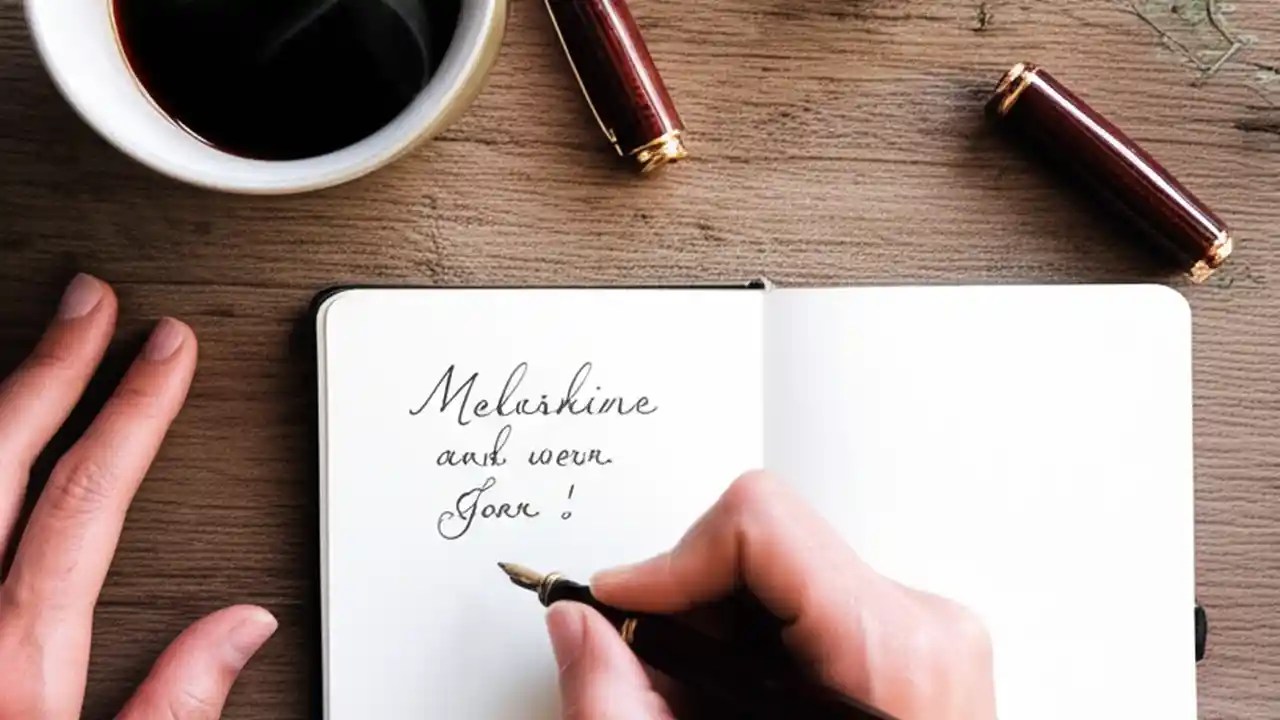 Melaskine
and wern
Gorr !